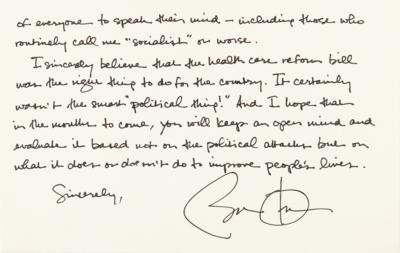 of everyone to speak their mind – including those who
routinely call me "socialist" or worse.
I sincerely believe that the health care reform bill
was the right thing to do for the country. It certainly
wasn't the smart "political thing!" And I hope that
in the months to come, you will keep an open mind and
evaluate it based not on the political attacks but on
what it does or doesn't do to improve people's lives.
Sincerely,